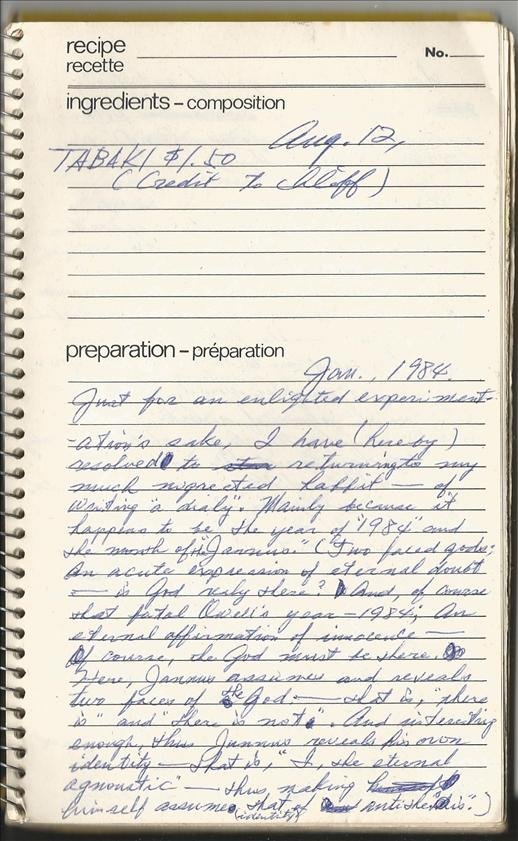 recipe
recette
No.
ingredients – composition
Aug. 12,
TABAKI $1.50
(Credit to Cliff)
preparation – préparation
Jan., 1984.
Just for an enlighted experiment-
-ation's sake, I have (hereby)
resolved to returning to my
much negrected habbit — of
writing "a dialy". Mainly because it
happens to be the year of "1984" and
the month of the "Jannus." (Two faced gods;
An acute expression of eternal doubt
— is God realy there? And, of course
that fatal Owell's year – 1984; An
eternal affirmation of innocence —
Of course, the God must be there.
Here, Jannus assumes and reveals
two faces of the God. — that is, "there
is" and "there is not". And interesting
enough, thus Jannus reveals his own
identity — that is, "I, the eternal
agnoustic" — thus, making
himself assume, that of antithe"sis".)
(identity)